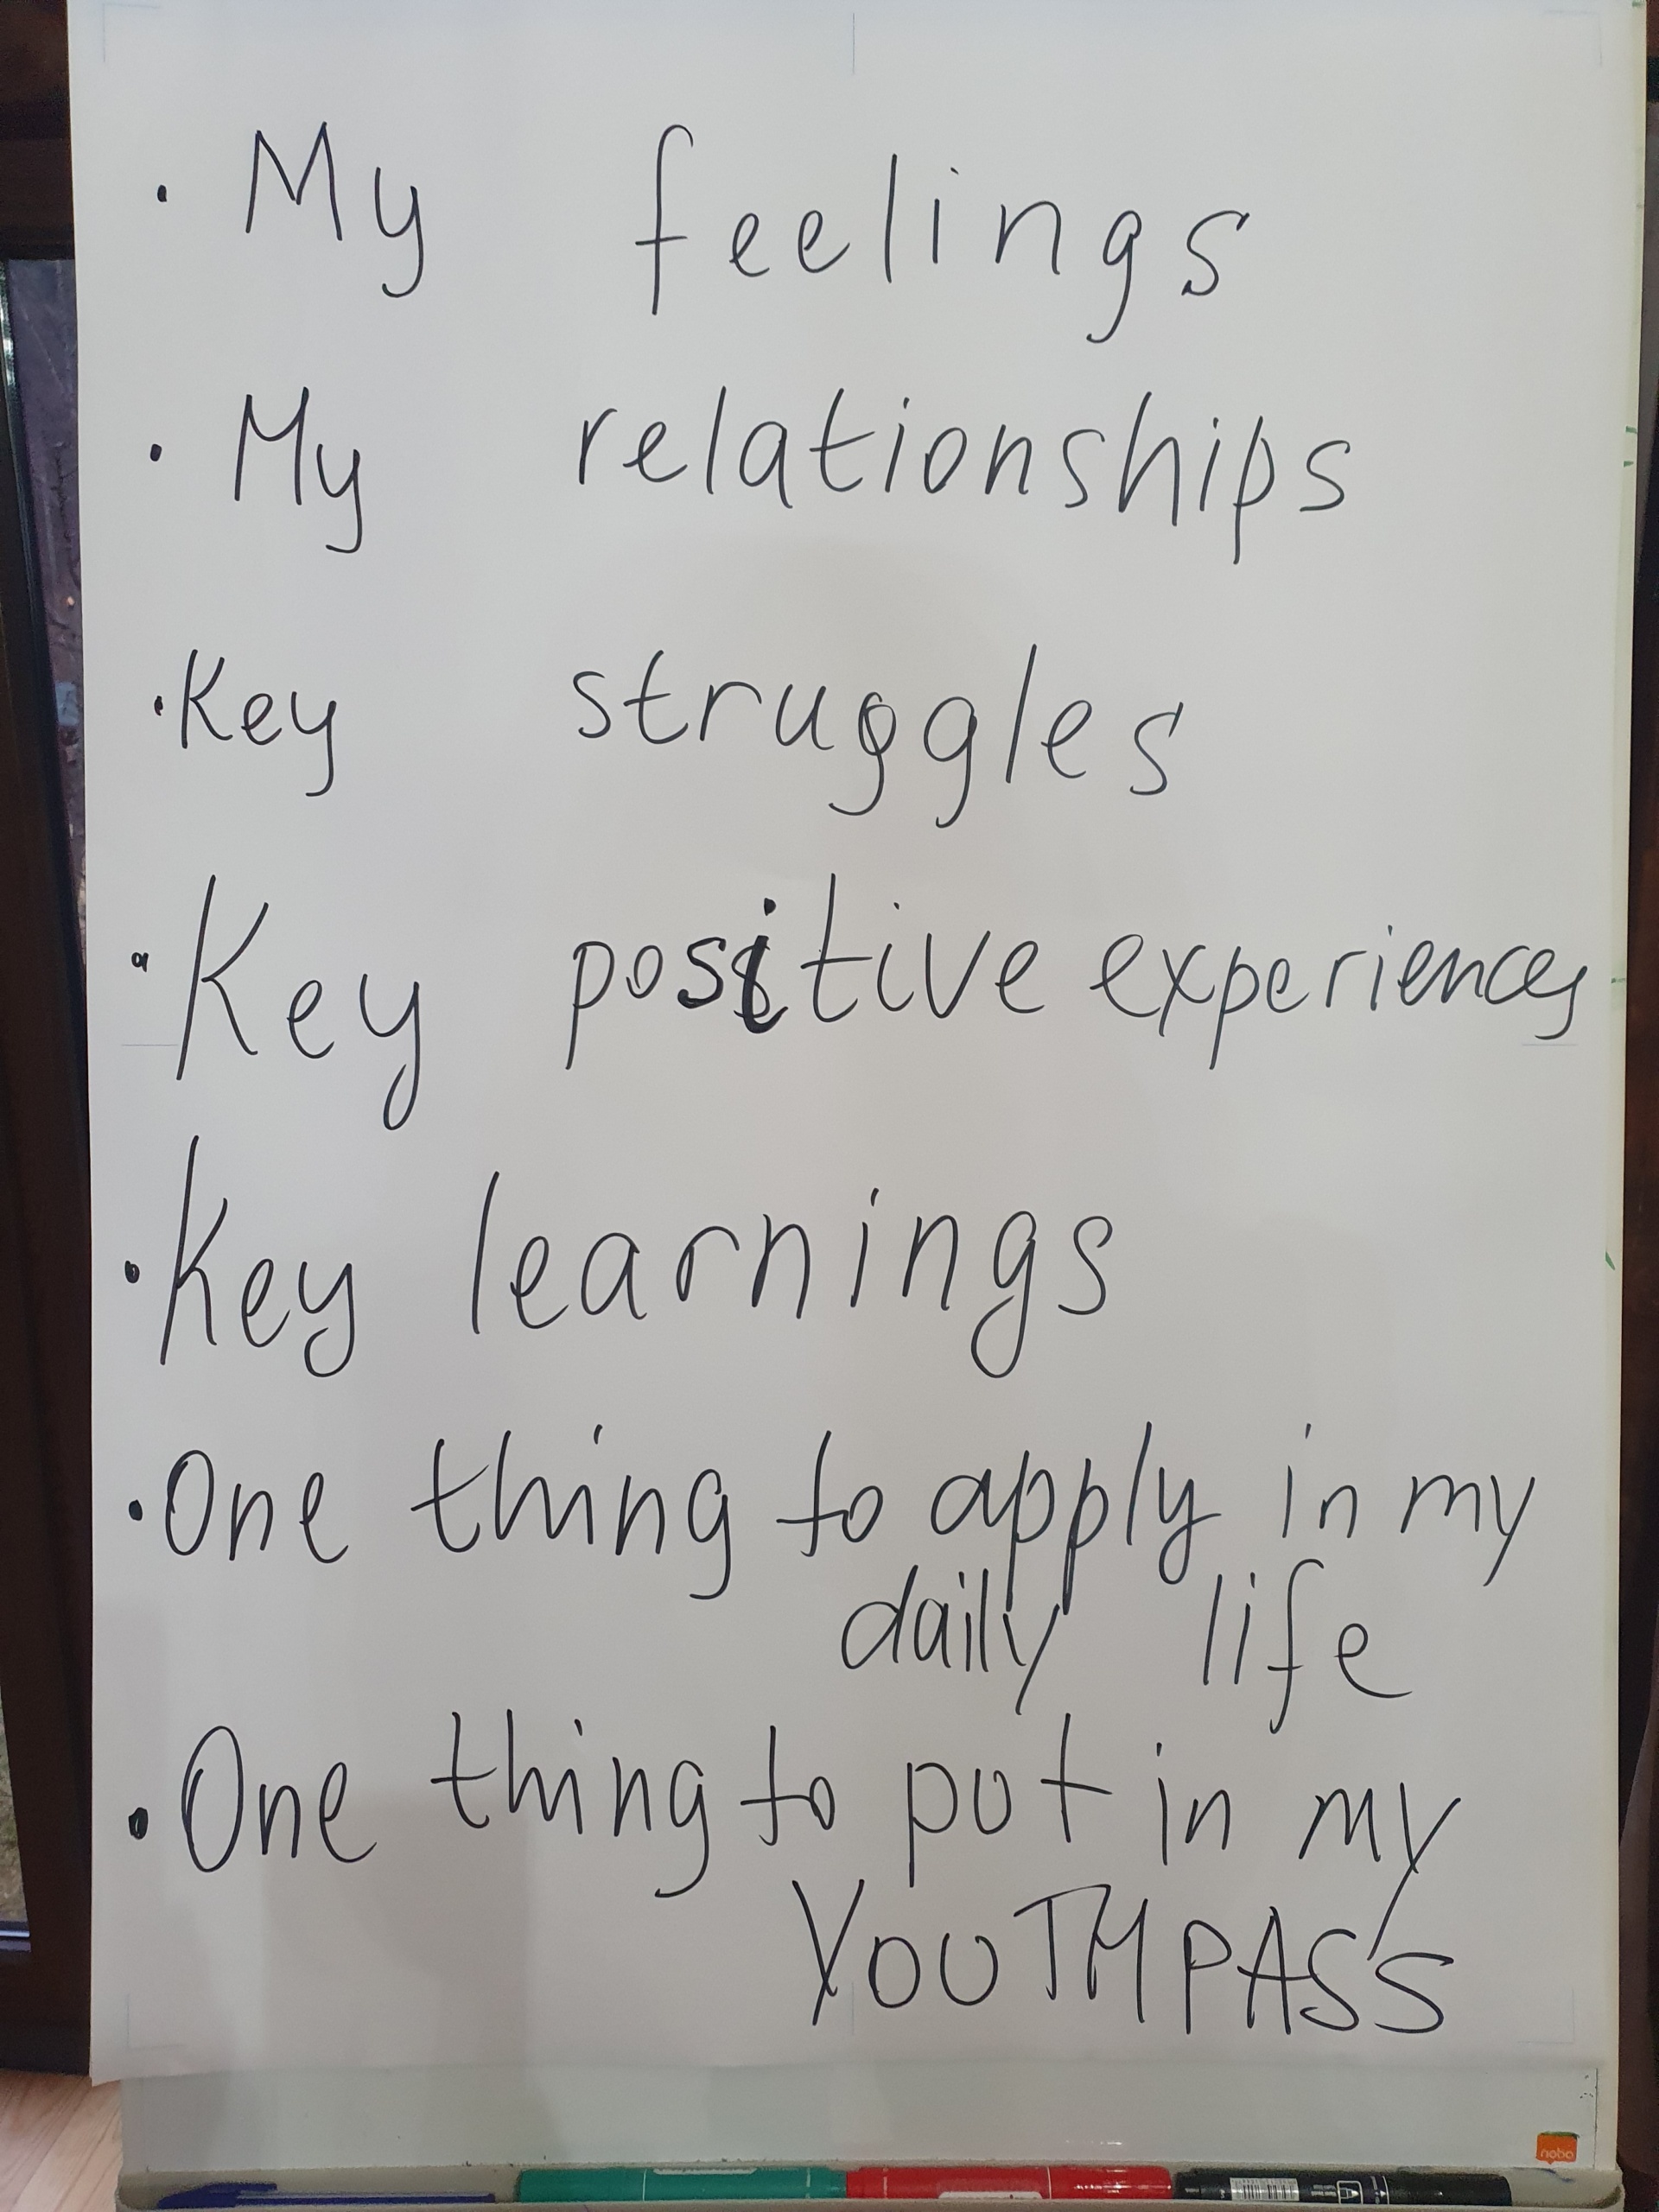 · My feelings
· My relationships
· Key struggles
· Key positive experiences
· Key learnings
· One thing to apply in my
daily life
· One thing to put in my
YOUTHPASS
nobo